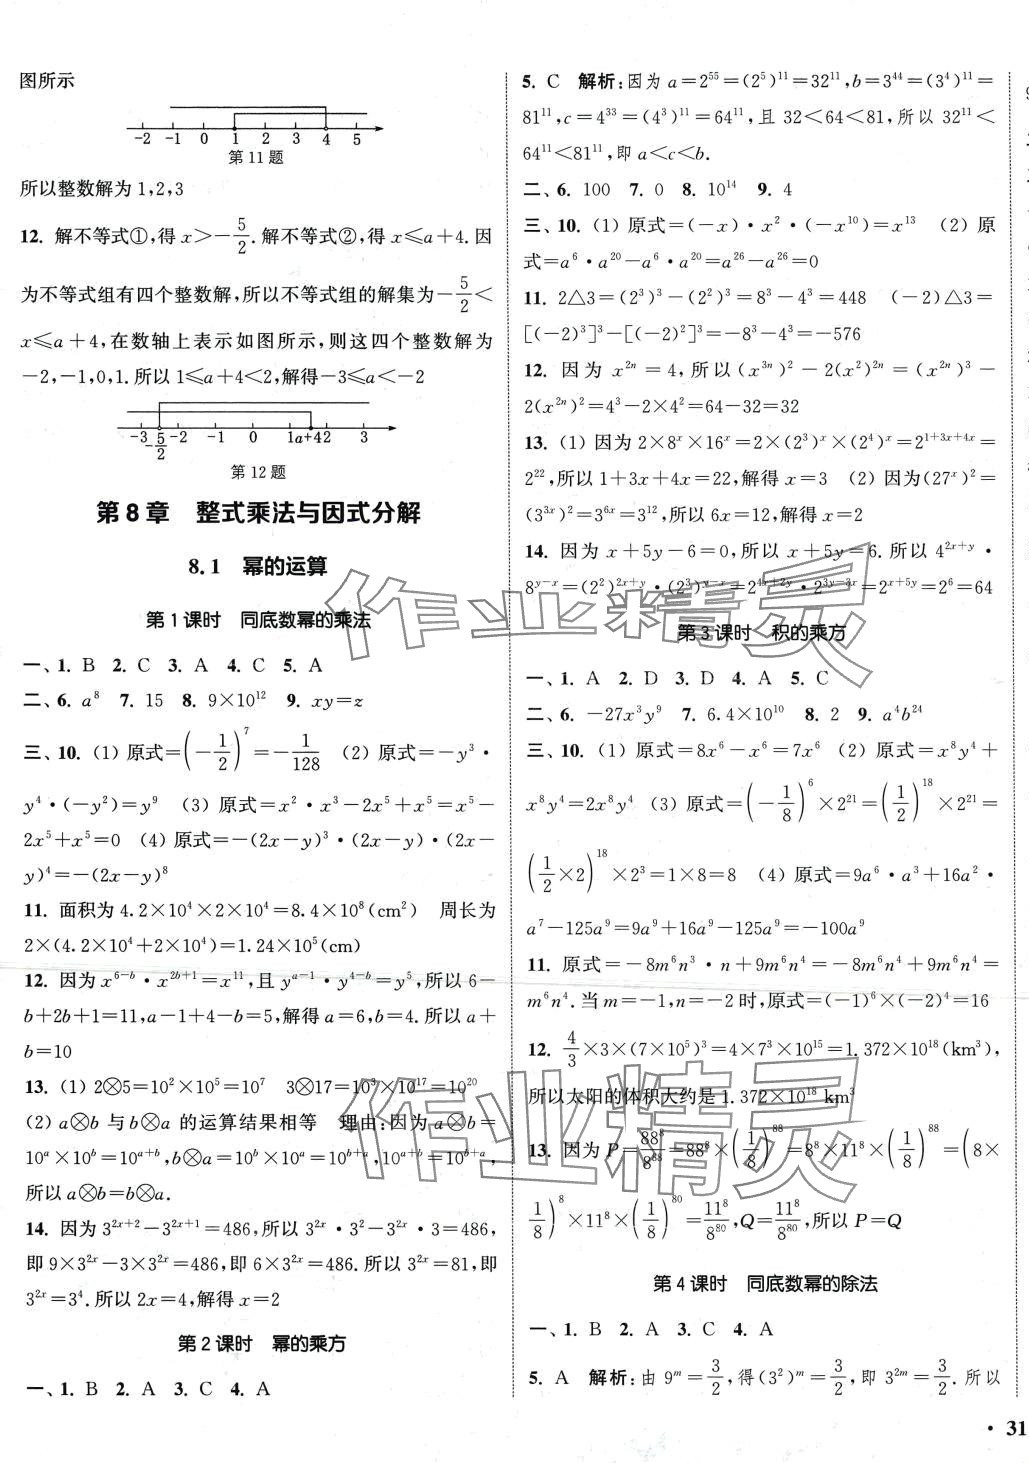 图所示
-2 -1 0 1 2 3 4 5
第11题
所以整数解为1,2,3
12. 解不等式①,得x>-5/2.解不等式②,得x≤a+4.因
为不等式组有四个整数解,所以不等式组的解集为-5/2<
x≤a+4,在数轴上表示如图所示,则这四个整数解为
-2,-1,0,1.所以1≤a+4<2,解得-3≤a<-2
-3 -5/2 -2 -1 0 1a+42 3
第12题
第8章 整式乘法与因式分解
8.1 幂的运算
第1课时 同底数幂的乘法
一、1. B 2. C 3. A 4. C 5. A
二、6. a⁸ 7. 15 8. 9×10¹² 9. xy=z
三、10. (1) 原式=(-1/2)⁷=-1/128 (2) 原式=-y³·
y⁴·(-y²)=y⁹ (3) 原式=x²·x³-2x⁵+x⁵=x⁵-
2x⁵+x⁵=0 (4) 原式=-(2x-y)³·(2x-y)·(2x-
y)⁴=-(2x-y)⁸
11. 面积为4.2×10⁴×2×10⁴=8.4×10⁸(cm²) 周长为
2×(4.2×10⁴+2×10⁴)=1.24×10⁵(cm)
12. 因为x⁶⁻ᵇ·x²ᵇ⁺¹=x¹¹,且yᵃ⁻¹·y⁴⁻ᵇ=y⁵,所以6-
b+2b+1=11,a-1+4-b=5,解得a=6,b=4.所以a+
b=10
13. (1) 2⊗5=10²×10⁵=10⁷ 3⊗17=10³×10¹⁷=10²⁰
(2) a⊗b与b⊗a的运算结果相等 理由:因为a⊗b=
10ᵃ×10ᵇ=10ᵃ⁺ᵇ,b⊗a=10ᵇ×10ᵃ=10ᵇ⁺ᵃ,10ᵃ⁺ᵇ=10ᵇ⁺ᵃ,
所以a⊗b=b⊗a.
14. 因为3²ˣ⁺²-3²ˣ⁺¹=486,所以3²ˣ·3²-3²ˣ·3=486,
即9×3²ˣ-3×3²ˣ=486,即6×3²ˣ=486.所以3²ˣ=81,即
3²ˣ=3⁴.所以2x=4,解得x=2
第2课时 幂的乘方
一、1. B 2. A 3. C 4. A
5. C 解析:因为a=2⁵⁵=(2⁵)¹¹=32¹¹,b=3⁴⁴=(3⁴)¹¹=
81¹¹,c=4³³=(4³)¹¹=64¹¹,且32<64<81,所以32¹¹<
64¹¹<81¹¹,即a<c<b.
二、6. 100 7. 0 8. 10¹⁴ 9. 4
三、10. (1) 原式=(-x)·x²·(-x¹⁰)=x¹³ (2) 原
式=a⁶·a²⁰-a⁶·a²⁰=a²⁶-a²⁶=0
11. 2△3=(2³)³-(2²)³=8³-4³=448 (-2)△3=
[(-2)³]³-[(-2)²]³=-8³-4³=-576
12. 因为x²ⁿ=4,所以(x³ⁿ)²-2(x²)²ⁿ=(x²ⁿ)³-
2(x²ⁿ)²=4³-2×4²=64-32=32
13. (1) 因为2×8ˣ×16ˣ=2×(2³)ˣ×(2⁴)ˣ=2¹⁺³ˣ⁺⁴ˣ=
2²²,所以1+3x+4x=22,解得x=3 (2) 因为(27ˣ)²=
(3³ˣ)²=3⁶ˣ=3¹²,所以6x=12,解得x=2
14. 因为x+5y-6=0,所以x+5y=6.所以4²ˣ⁺ʸ·
8ʸ⁻ˣ=(2²)²ˣ⁺ʸ·(2³)ʸ⁻ˣ=2⁴ˣ⁺²ʸ·2³ʸ⁻³ˣ=2ˣ⁺⁵ʸ=2⁶=64
第3课时 积的乘方
一、1. A 2. D 3. D 4. A 5. C
二、6. -27x³y⁹ 7. 6.4×10¹⁰ 8. 2 9. a⁴b²⁴
三、10. (1) 原式=8x⁶-x⁶=7x⁶ (2) 原式=x⁸y⁴+
x⁸y⁴=2x⁸y⁴ (3) 原式=(-1/8)⁶×2²¹=(1/2)¹⁸×2²¹=
(1/2×2)¹⁸×2³=1×8=8 (4) 原式=9a⁶·a³+16a²·
a⁷-125a⁹=9a⁹+16a⁹-125a⁹=-100a⁹
11. 原式=-8m⁶n³·n+9m⁶n⁴=-8m⁶n⁴+9m⁶n⁴=
m⁶n⁴.当m=-1,n=-2时,原式=(-1)⁶×(-2)⁴=16
12. 4/3×3×(7×10⁵)³=4×7³×10¹⁵=1.372×10¹⁸(km³),
所以太阳的体积大约是1.372×10¹⁸ km³
13. 因为P=88⁸/8⁸⁸=88⁸×(1/8)⁸⁸=8⁸×11⁸×(1/8)⁸⁸=(8×
1/8)⁸×11⁸×(1/8)⁸⁰=11⁸/8⁸⁰,Q=11⁸/8⁸⁰,所以P=Q
第4课时 同底数幂的除法
一、1. B 2. A 3. C 4. A
5. A 解析:由9ᵐ=3/2,得(3²)ᵐ=3/2,即3²ᵐ=3/2.所以
·31
作业精灵
作业精灵